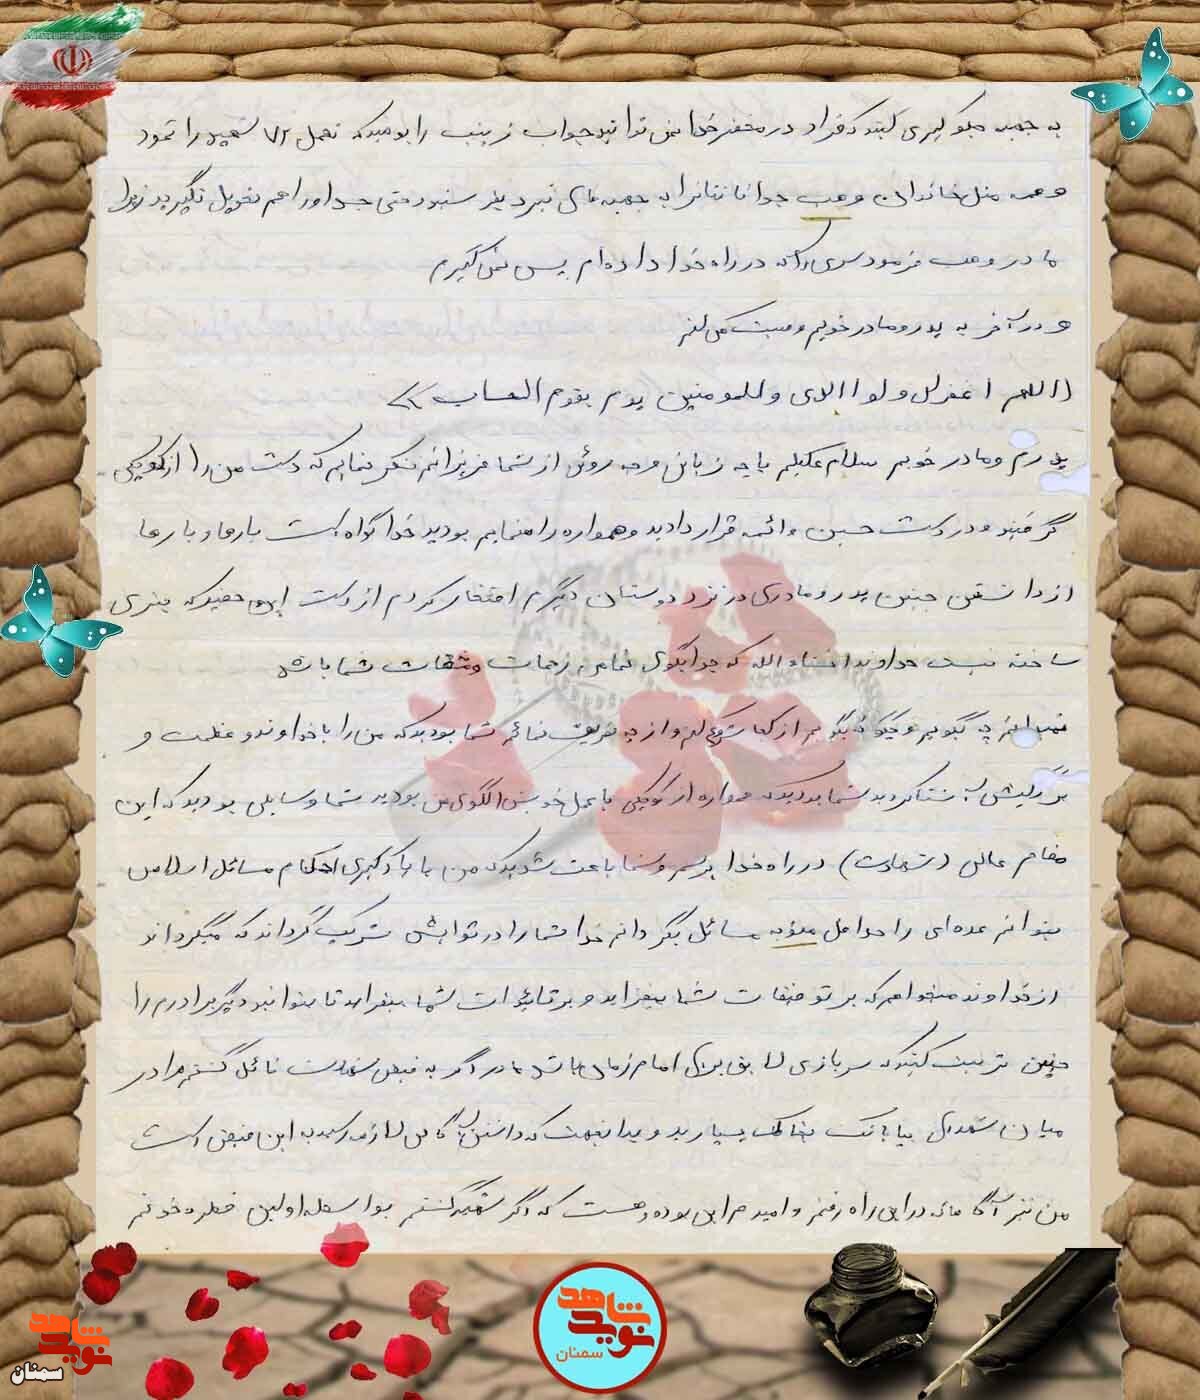 به جبهه جلوگیری کنید که فردا در محضر خدا نمی توانید جواب زینب را بدهید که تحمل ۷۲ شهید را نمود
و همه مثل خاندان وهب جوانانتان را به جبهه های نبرد بفرستید و حتی جسد او را هم تحویل نگیرید زیرا
مادر وهب فرمود سری را که در راه خدا داده ام پس نمی گیرم
و در آخر به پدر و مادر خوبم وصیت می کنم
(اللهم اغفرلی ولوالدی وللمومنین یوم یقوم الحساب >>
پدرم و مادر خوبم سلام علیکم با چه زبانی و چه روئی از شما عزیزانم تشکر نمایم که دست من را از کوچکی
گرفتید و در دست حسین و ائمه قرار دادید و همواره راهنمایم بودید خدا گواه است بارها و بارها
از داشتن چنین پدر و مادری در نزد دوستان دیگرم افتخار کردم از دست این حقیر که چیزی
ساخته نیست خداوند انشاء الله که جوابگوی تمام زحمات و مشقات شما باشد
نمیدانم چه بگویم و چگونه بگویم از کجا شروع کنم و از چه تعریف نمائم شما بودید که من را با خداوند و عظمت و
بزرگیش آشنا کردید شما بودید که همواره از کوچکی با عمل خویش الگوی من بودید شما وسایلی بودید که این
مقام عالی (شهادت) در راه خدا برسم و شما باعث شدید که من با یادگیری احکام مسائل اسلامی
بتوانم عده ای را حداقل متوجه مسائل بگردانم خدا شما را در ثوابش شریک گرداند که میگرداند
از خداوند میخواهم که بر توفیقات شما بیفزاید و بر تاثیرات شما بیفزاید تا بتوانید دیگر برادرم را
چنین تربیت کنید که سربازی لایق برای امام زمان باشد مادر اگر به فیض شهادت نائل گشتم مرا در
میان شهدای بیابانک بخاک بسپارید و بدانید که داشتن آگاهی لازمه رسیدن به این فیض است
من نیز آگاهانه در این راه رفتم و امیدم این بوده و هست که اگر شهید گشتم بواسطه اولین قطره خونم
شاهد
نوید
سمنان
شاهد
نوید
سمنان